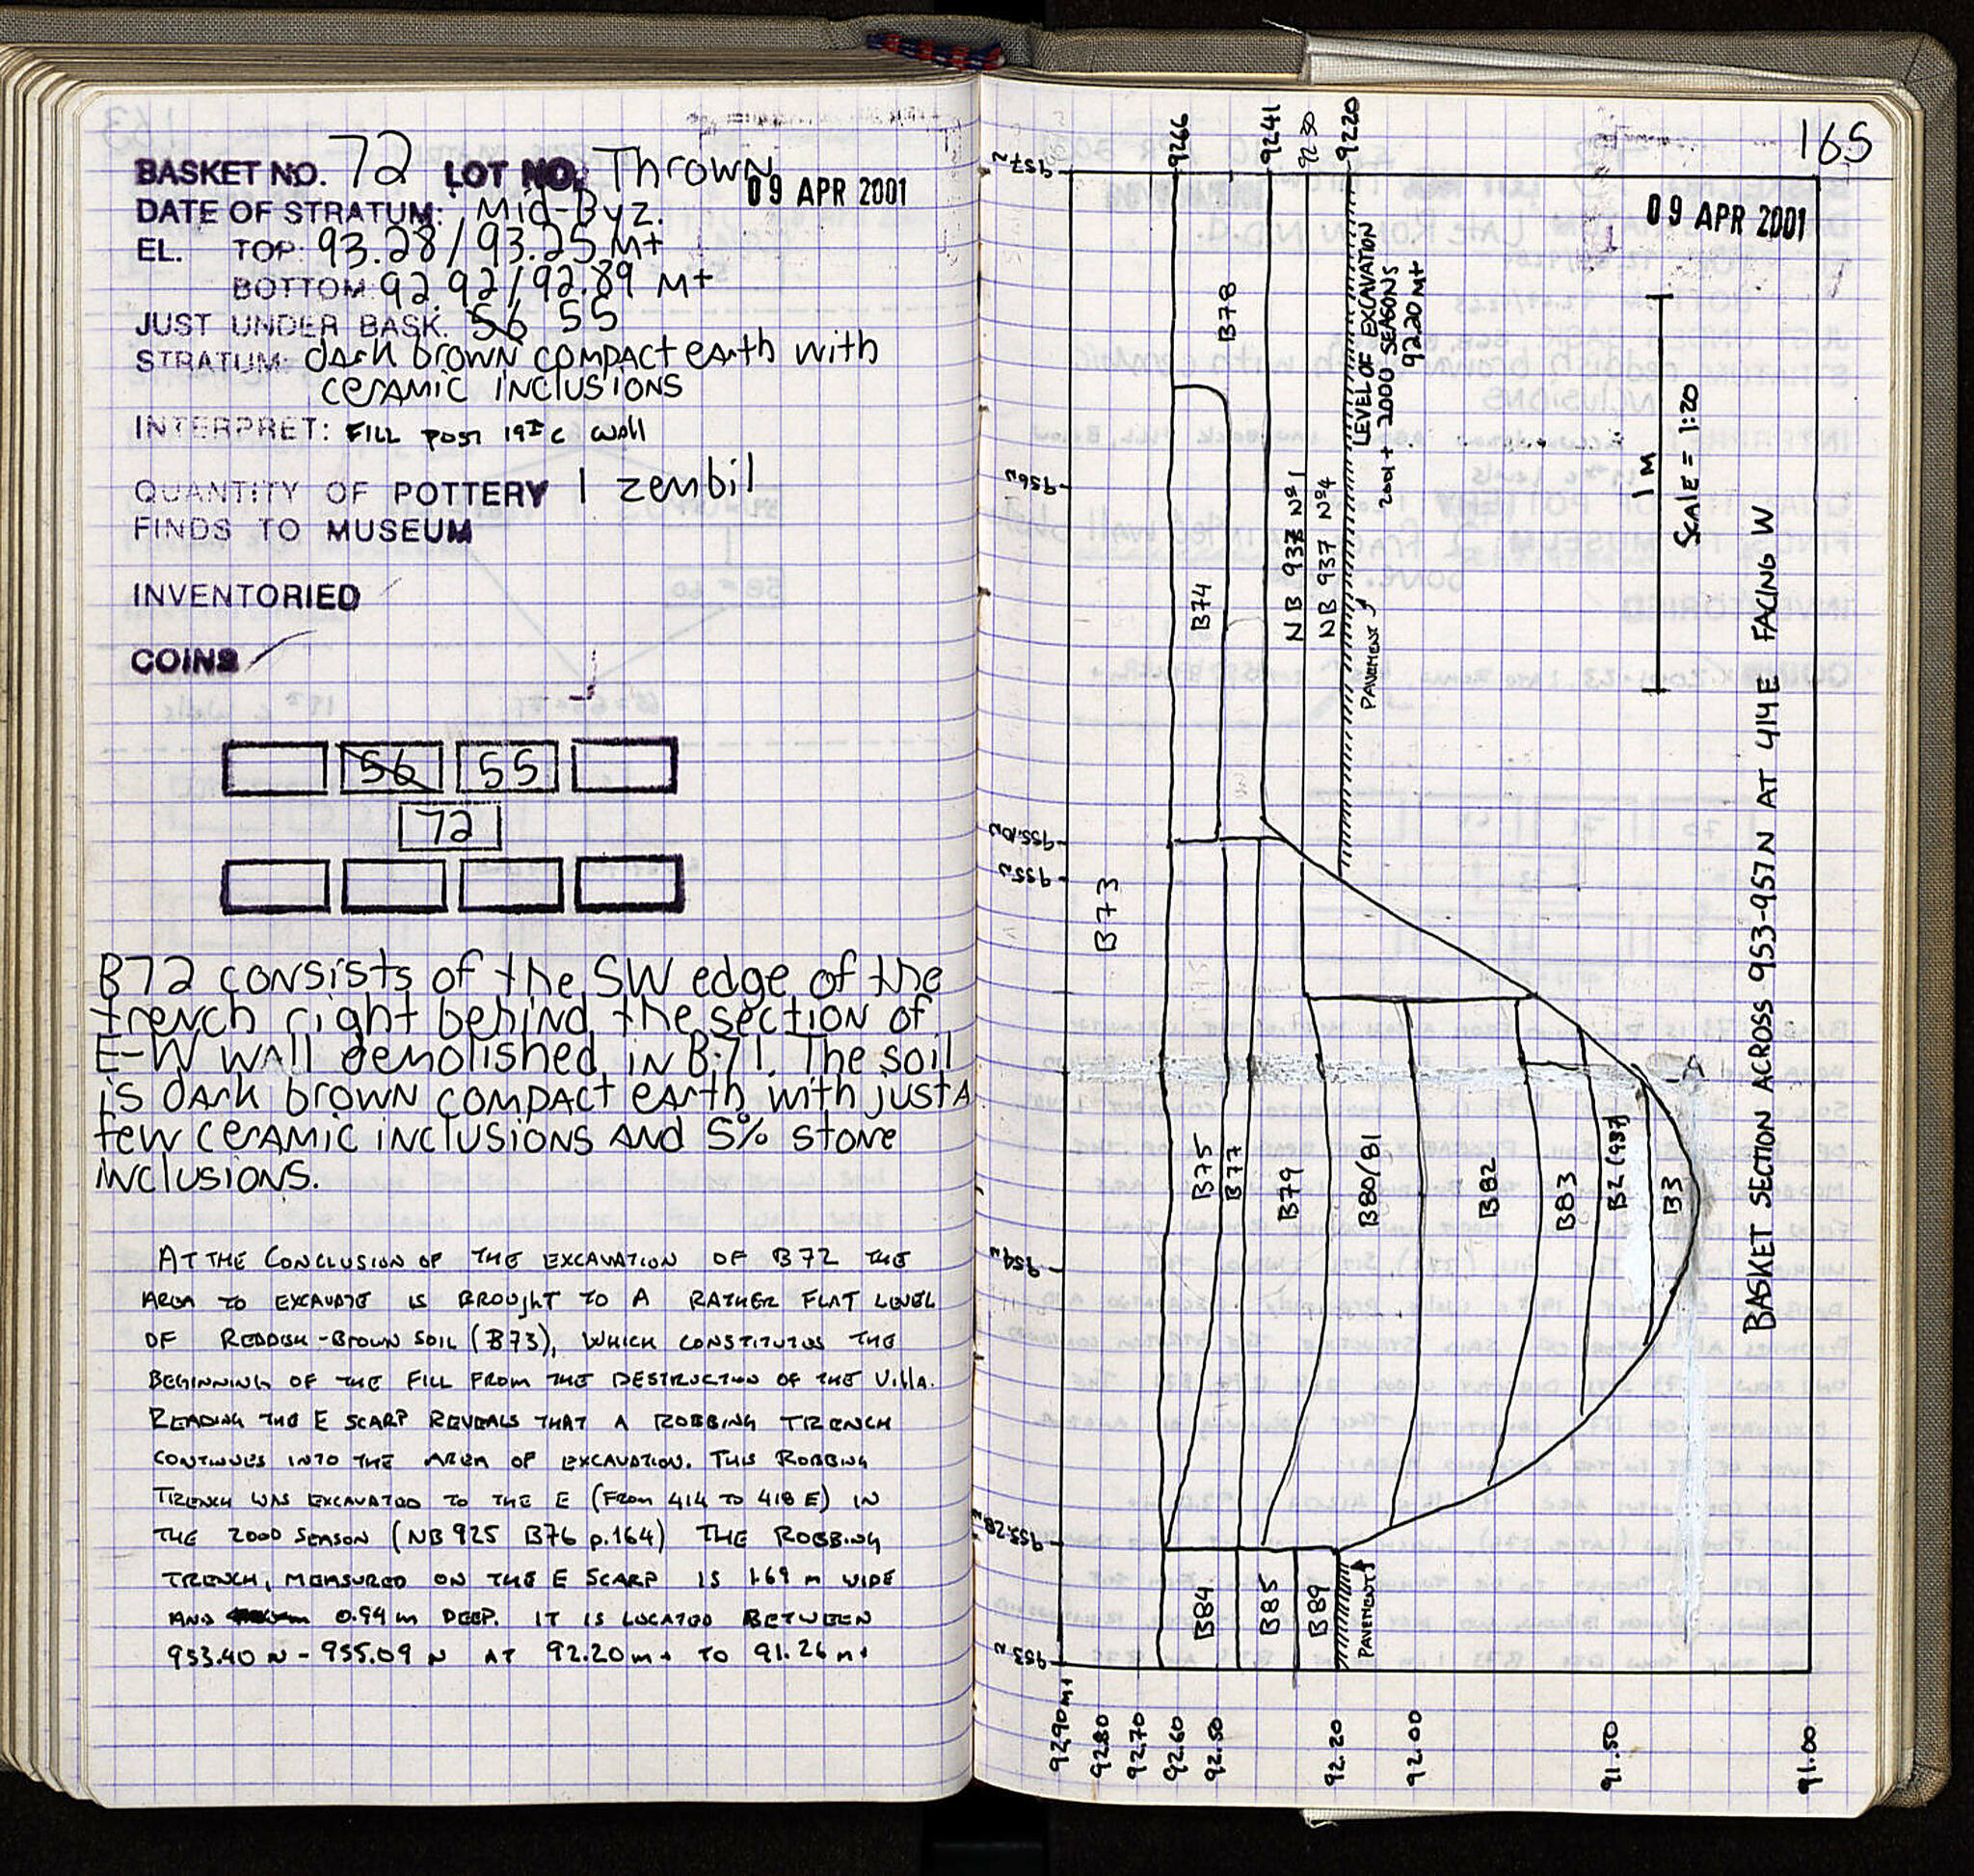 BASKET NO. 72 LOT NO. Thrown
09 APR 2001
DATE OF STRATUM: Mid-Byz.
EL. TOP: 93.28/93.25 M+
BOTTOM: 92.92/92.89 M+
JUST UNDER BASK. 56 55
STRATUM: dark brown compact earth with
ceramic inclusions
INTERPRET: FILL POST 19th C WALL
QUANTITY OF POTTERY 1 zembil
FINDS TO MUSEUM
INVENTORIED
COINS
56 55
72
B72 consists of the SW edge of the
trench right behind the section of
E-W wall demolished in B.71. The soil
is dark brown compact earth with just a
few ceramic inclusions and 5% stone
inclusions.
AT THE CONCLUSION OF THE EXCAVATION OF B72 THE
AREA TO EXCAVATE IS BROUGHT TO A RATHER FLAT LEVEL
OF REDDISH-BROWN SOIL (B73), WHICH CONSTITUTES THE
BEGINNING OF THE FILL FROM THE DESTRUCTION OF THE VILLA.
READING THE E SCARP REVEALS THAT A ROBBING TRENCH
CONTINUES INTO THE AREA OF EXCAVATION. THIS ROBBING
TRENCH WAS EXCAVATED TO THE E (FROM 414 TO 418 E) IN
THE 2000 SEASON (NB 925 B76 p.164) THE ROBBING
TRENCH, MEASURED ON THE E SCARP IS 1.69 m WIDE
AND 0.94 m DEEP. IT IS LOCATED BETWEEN
953.40 N - 955.09 N AT 92.20 m+ TO 91.26 m+
165
09 APR 2001
957N
9266
9241
92 30
9220
B78
LEVEL OF EXCAVATION
2001 + 2000 SEASONS
92.20 M+
1 M
SCALE = 1:20
956N
B74
NB 937 No 1
NB 937 No 4
PAVEMENT
955.10N
955N
B73
A
B75
B77
B79
B80/81
B82
B83
B2 (937)
B3
954N
953.28N
B84
B85
B89
PAVEMENT
953N
92.90 m+
92.80
92.70
92.60
92.50
92.20
92.00
91.50
91.00
BASKET SECTION ACROSS 953-957N AT 414E FACING W